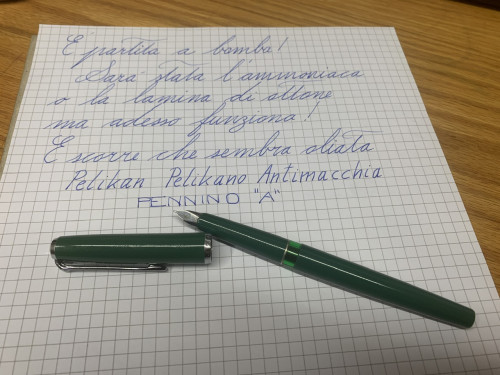 È partita a bomba!
Sarà stata l'ammoniaca
o la lamina di ottone
ma adesso funziona!
E scorre che sembra oliata
Pelikan Pelikano Antimacchia
PENNINO "A"